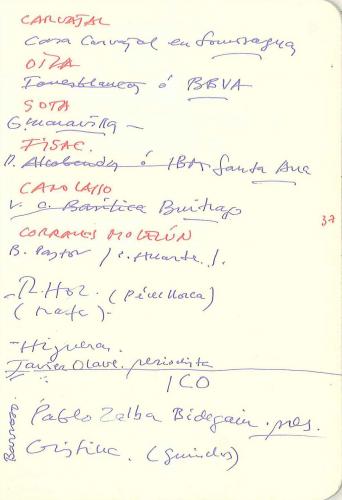 CARVAJAL
Casa Carvajal en Somosaguas
OIZA
Torresblancas ó BBVA
SOTA
G. Maravillas –
FISAC.
Alcobendas ó IBM Santa Ana
CANO LASSO
V. C. Basílica Buitrago
37
CORRALES MOLEZÚN
B. Pastor / C. Huarte /.
– R. Hoz. (Pérez Llorca)
– Higueras.
Javier Olave. periodista
ICO
Barroso.
Pablo Zalba Bidegain. pres.
Cristina. (Guindos)